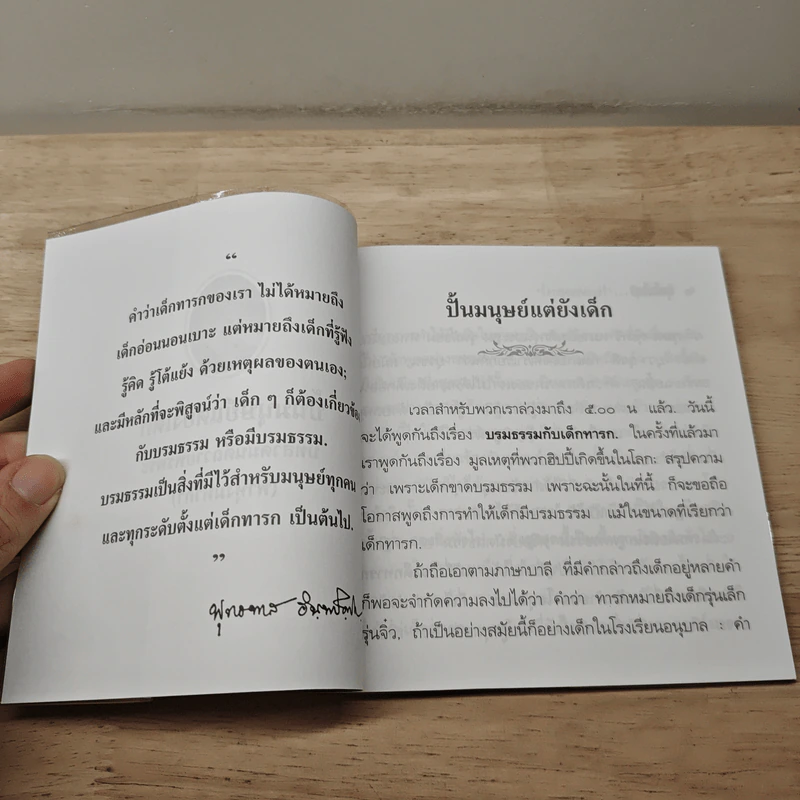 “
คำว่าเด็กทารกของเรา ไม่ได้หมายถึง
เด็กอ่อนนอนเบาะ แต่หมายถึงเด็กที่รู้ฟัง
รู้คิด รู้โต้แย้ง ด้วยเหตุผลของตนเอง;
และมีหลักที่จะพิสูจน์ว่า เด็ก ๆ ก็ต้องเกี่ยวข้อง
กับบรมธรรม หรือมีบรมธรรม.
บรมธรรมเป็นสิ่งที่มีไว้สำหรับมนุษย์ทุกคน
และทุกระดับตั้งแต่เด็กทารก เป็นต้นไป.
”
พุทธทาส อินฺทปญฺโญ
ปั้นมนุษย์แต่ยังเด็ก
เวลาสำหรับพวกเราล่วงมาถึง ๕.๐๐ น แล้ว. วันนี้
จะได้พูดกันถึงเรื่อง บรมธรรมกับเด็กทารก. ในครั้งที่แล้วมา
เราพูดกันถึงเรื่อง มูลเหตุที่พวกฮิปปี้เกิดขึ้นในโลก: สรุปความ
ว่า เพราะเด็กขาดบรมธรรม เพราะฉะนั้นในที่นี้ ก็จะขอถือ
โอกาสพูดถึงการทำให้เด็กมีบรมธรรม แม้ในขนาดที่เรียกว่า
เด็กทารก.
ถ้าถือเอาตามภาษาบาลี ที่มีคำกล่าวถึงเด็กอยู่หลายคำ
ก็พอจะจำกัดความลงไปได้ว่า คำว่า ทารกหมายถึงเด็กรุ่นเล็ก
รุ่นจิ๋ว. ถ้าเป็นอย่างสมัยนี้ก็อย่างเด็กในโรงเรียนอนุบาล : คำ